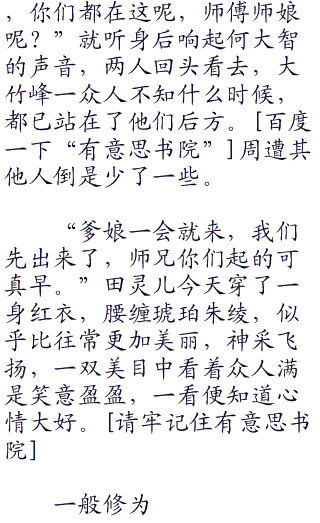 ，你们都在这呢，师傅师娘
呢？”就听身后响起何大智
的声音，两人回头看去，大
竹峰一众人不知什么时候，
都已站在了他们后方。[百度
一下“有意思书院”]周遭其
他人倒是少了一些。
“爹娘一会就来，我们
先出来了，师兄你们起的可
真早。”田灵儿今天穿了一
身红衣，腰缠琥珀朱绫，似
乎比往常更加美丽，神采飞
扬，一双美目中看着众人满
是笑意盈盈，一看便知道心
情大好。[请牢记住有意思书
院]
一般修为